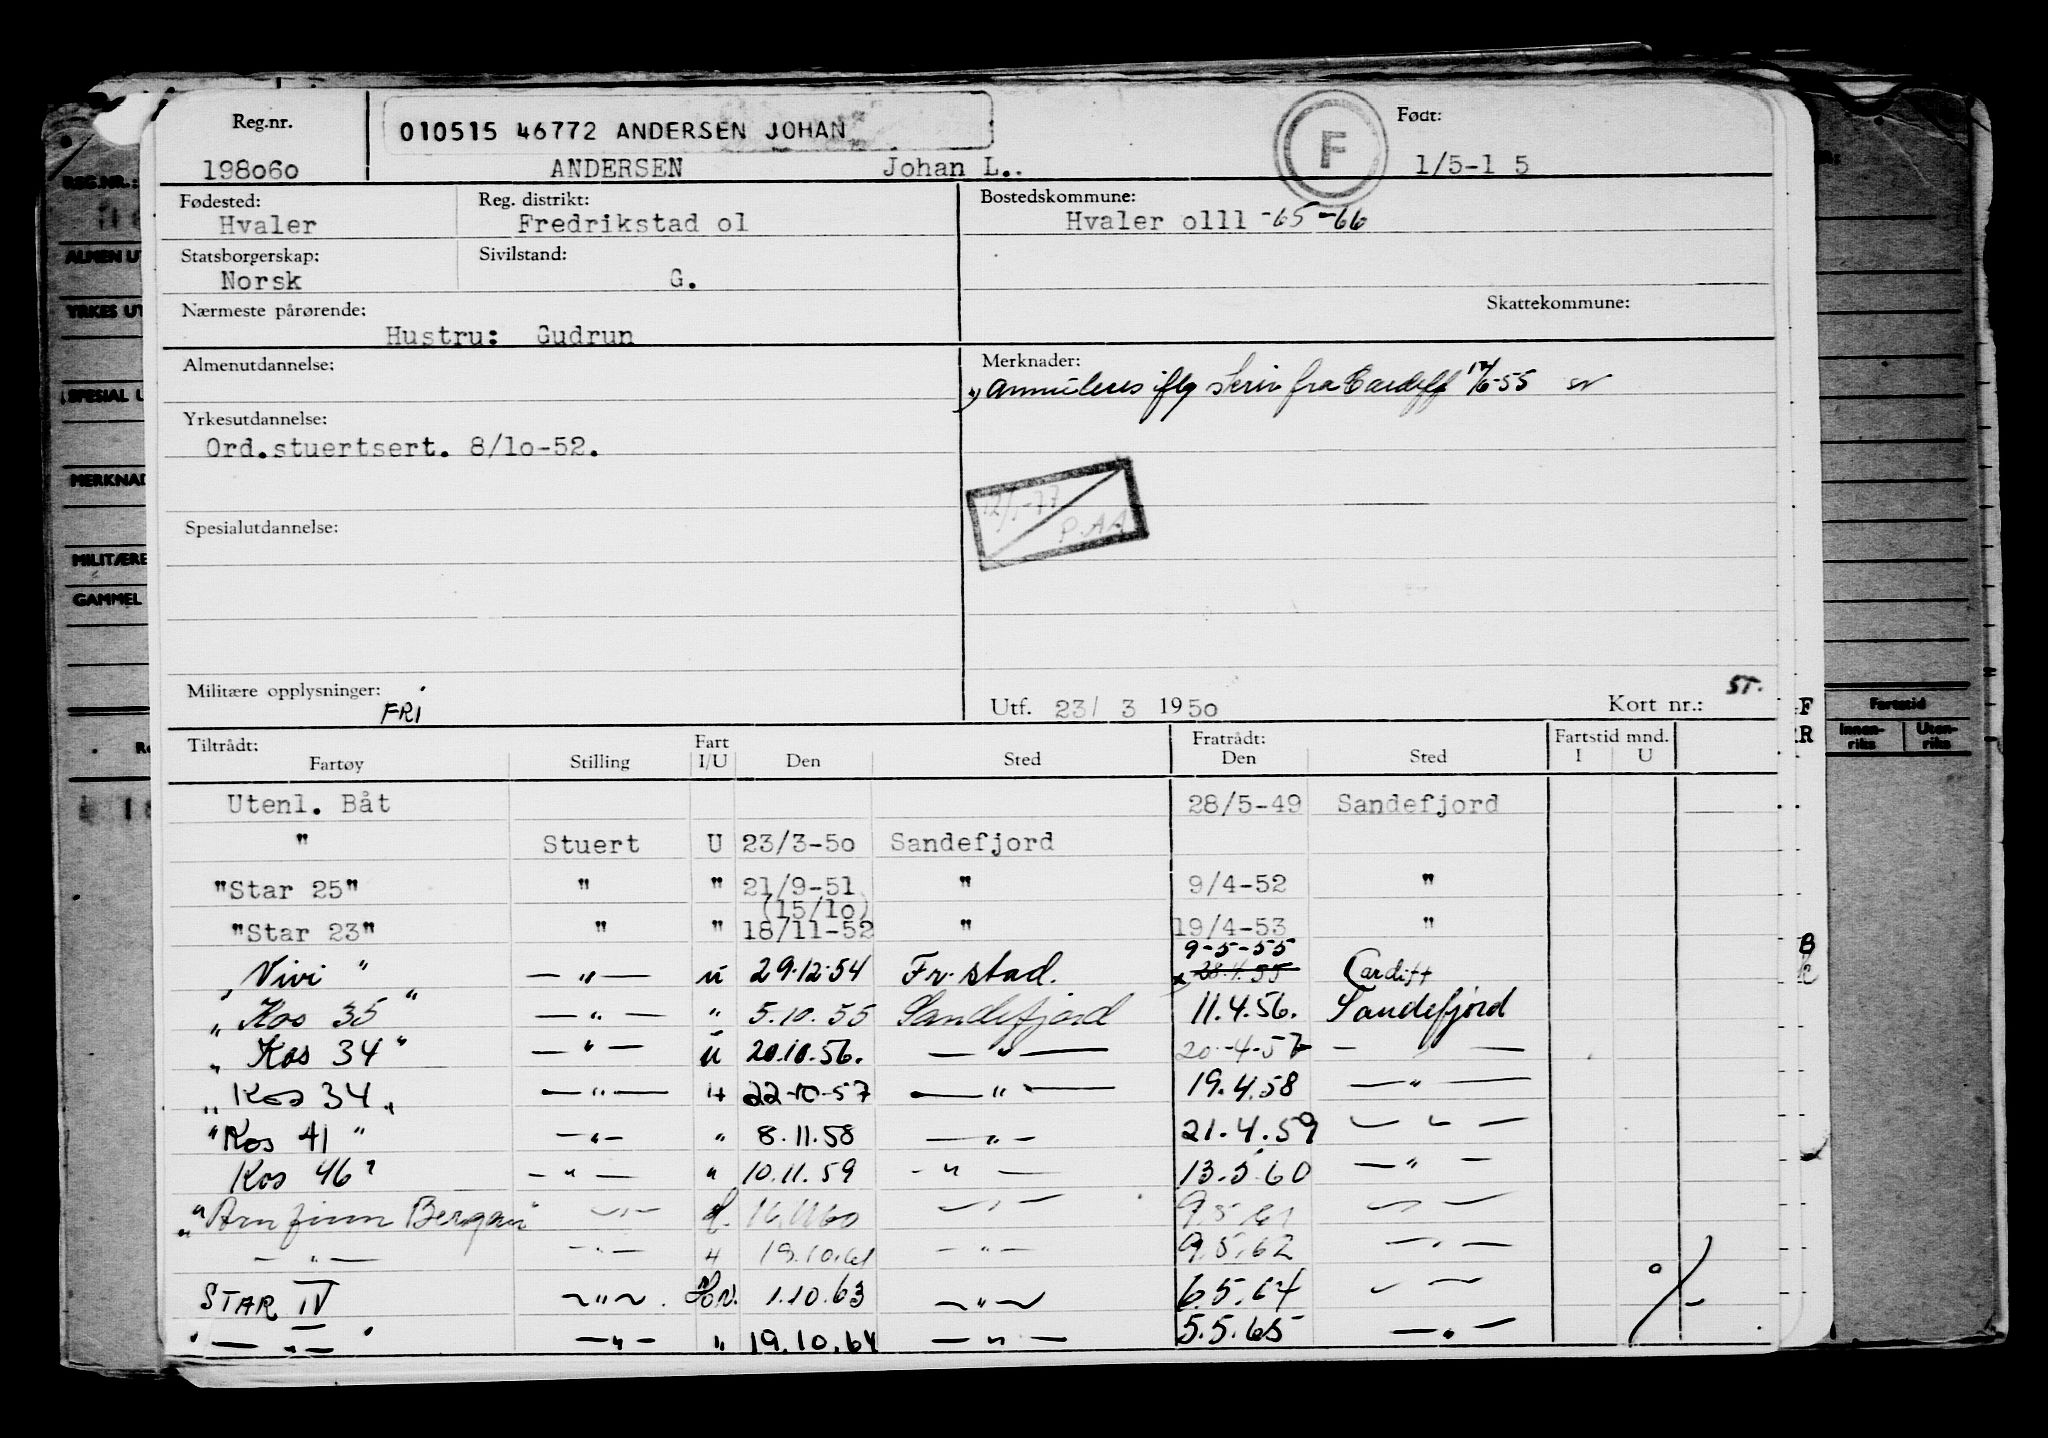 Reg.nr. 010515 46772 ANDERSEN JOHAN F Født:
198060 ANDERSEN Johan L. 1/5-1 5
Fødested: Reg. distrikt: Bostedskommune:
Hvaler Fredrikstad ol Hvaler olll -65-66
Statsborgerskap: Sivilstand:
Norsk G.
Nærmeste pårørende: Skattekommune:
Hustru: Gudrun
Almenutdannelse: Merknader:
annuleres iflg skriv fra Cardiff 17/6-55
Yrkesutdannelse:
Ord.stuertsert. 8/lo-52.
12/1-77
P.AA
Spesialutdannelse:
Militære opplysninger: FRI Utf. 23/ 3 1950 Kort nr.: ST.
Tiltrådt: Fart Fratrådt: Fartstid mnd.
Fartøy Stilling I/U Den Sted Den Sted I U
Utenl. Båt 28/5-49 Sandefjord
" Stuert U 23/3-50 Sandefjord
"Star 25" " " 21/9-51 " 9/4-52 "
(15/lo)
"Star 23" " " 18/11-52 " 19/4-53 "
9-5-55
"Vivi" — " — u 29.12.54 Fr.stad. x 28.4.55 Cardiff
"Kos 35" — " — " 5.10.55 Sandefjord 11.4.56. Sandefjord
"Kos 34" — " — u 20.10.56. — " — 20-4-57 — " —
"Kos 34" — " — u 22-10-57 — " — 19.4.58 — " —
"Kos 41" — " — " 8.11.58 — " — 21.4.59 — " —
Kos 46" — " — " 10.11.59 — " — 13.5.60 — " —
"Arnfinn Bergan" — " — 16.11.60 — " — 9.5.61 — " —
— " — — " — " 19.10.61 — " — 9.5.62 — " —
STAR IV — " — Hv. 1.10.63 — " — 6.5.64 — " —
" — " — " — " — " 19.10.64 — " — 5.5.65 — " —
REG.NR.:
ALMEN UT
YRKES UT
SPESIAL U
MERKNAD
MILITÆRE
GAMMEL
Fartstid
Innen-
riks
Uten-
riks